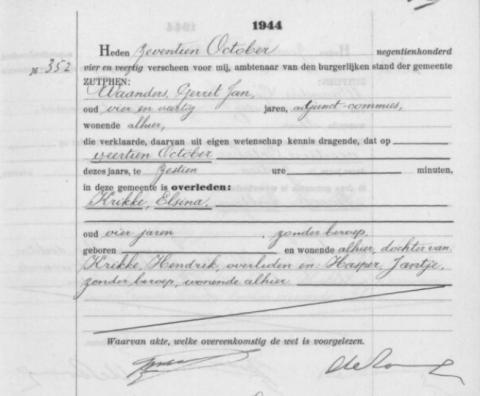 1944
Heden zeventien October negentienhonderd
No 352 vier en veertig verscheen voor mij, ambtenaar van den burgerlijken stand der gemeente
ZUTPHEN:
Waanders, Gerrit Jan,
oud vier en veertig jaren, adjunct-commies,
wonende alhier,
die verklaarde, daarvan uit eigen wetenschap kennis dragende, dat op
veertien October
dezes jaars, te zestien ure minuten,
in deze gemeente is overleden:
Krikke, Elsina,
oud vier jaren, zonder beroep,
geboren en wonende alhier, dochter van
Krikke, Hendrik, overleden en Hasper, Jantje,
zonder beroep, wonende alhier
Waarvan akte, welke overeenkomstig de wet is voorgelezen.